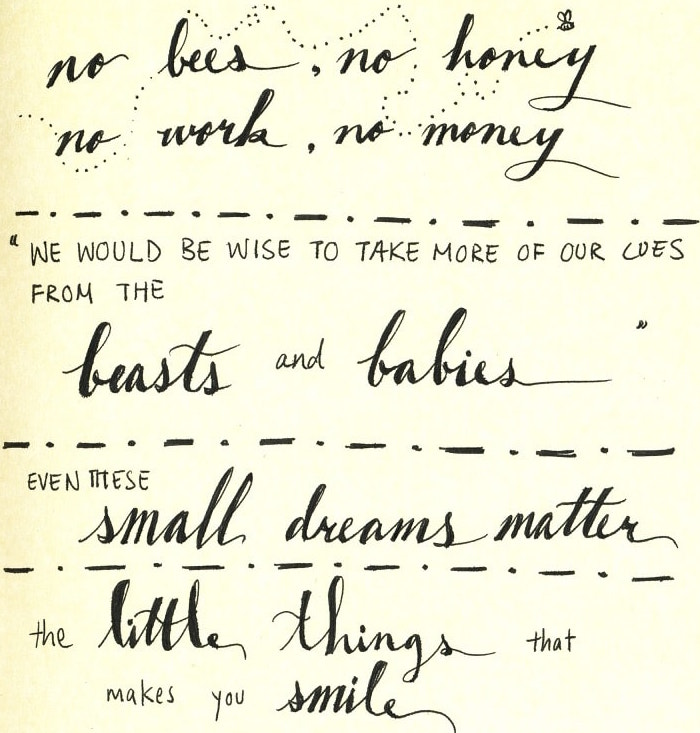 no bees, no honey
no work, no money
"WE WOULD BE WISE TO TAKE MORE OF OUR CUES
FROM THE
beasts and babies"
EVEN THESE
small dreams matter
the little things that
makes you smile